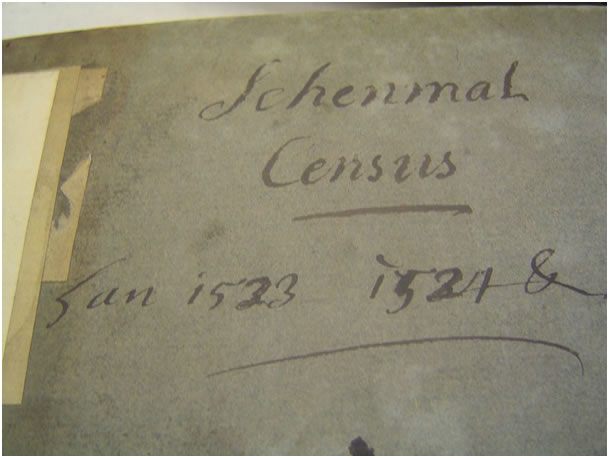 Ichenmal
Census
San 1523 1524 &